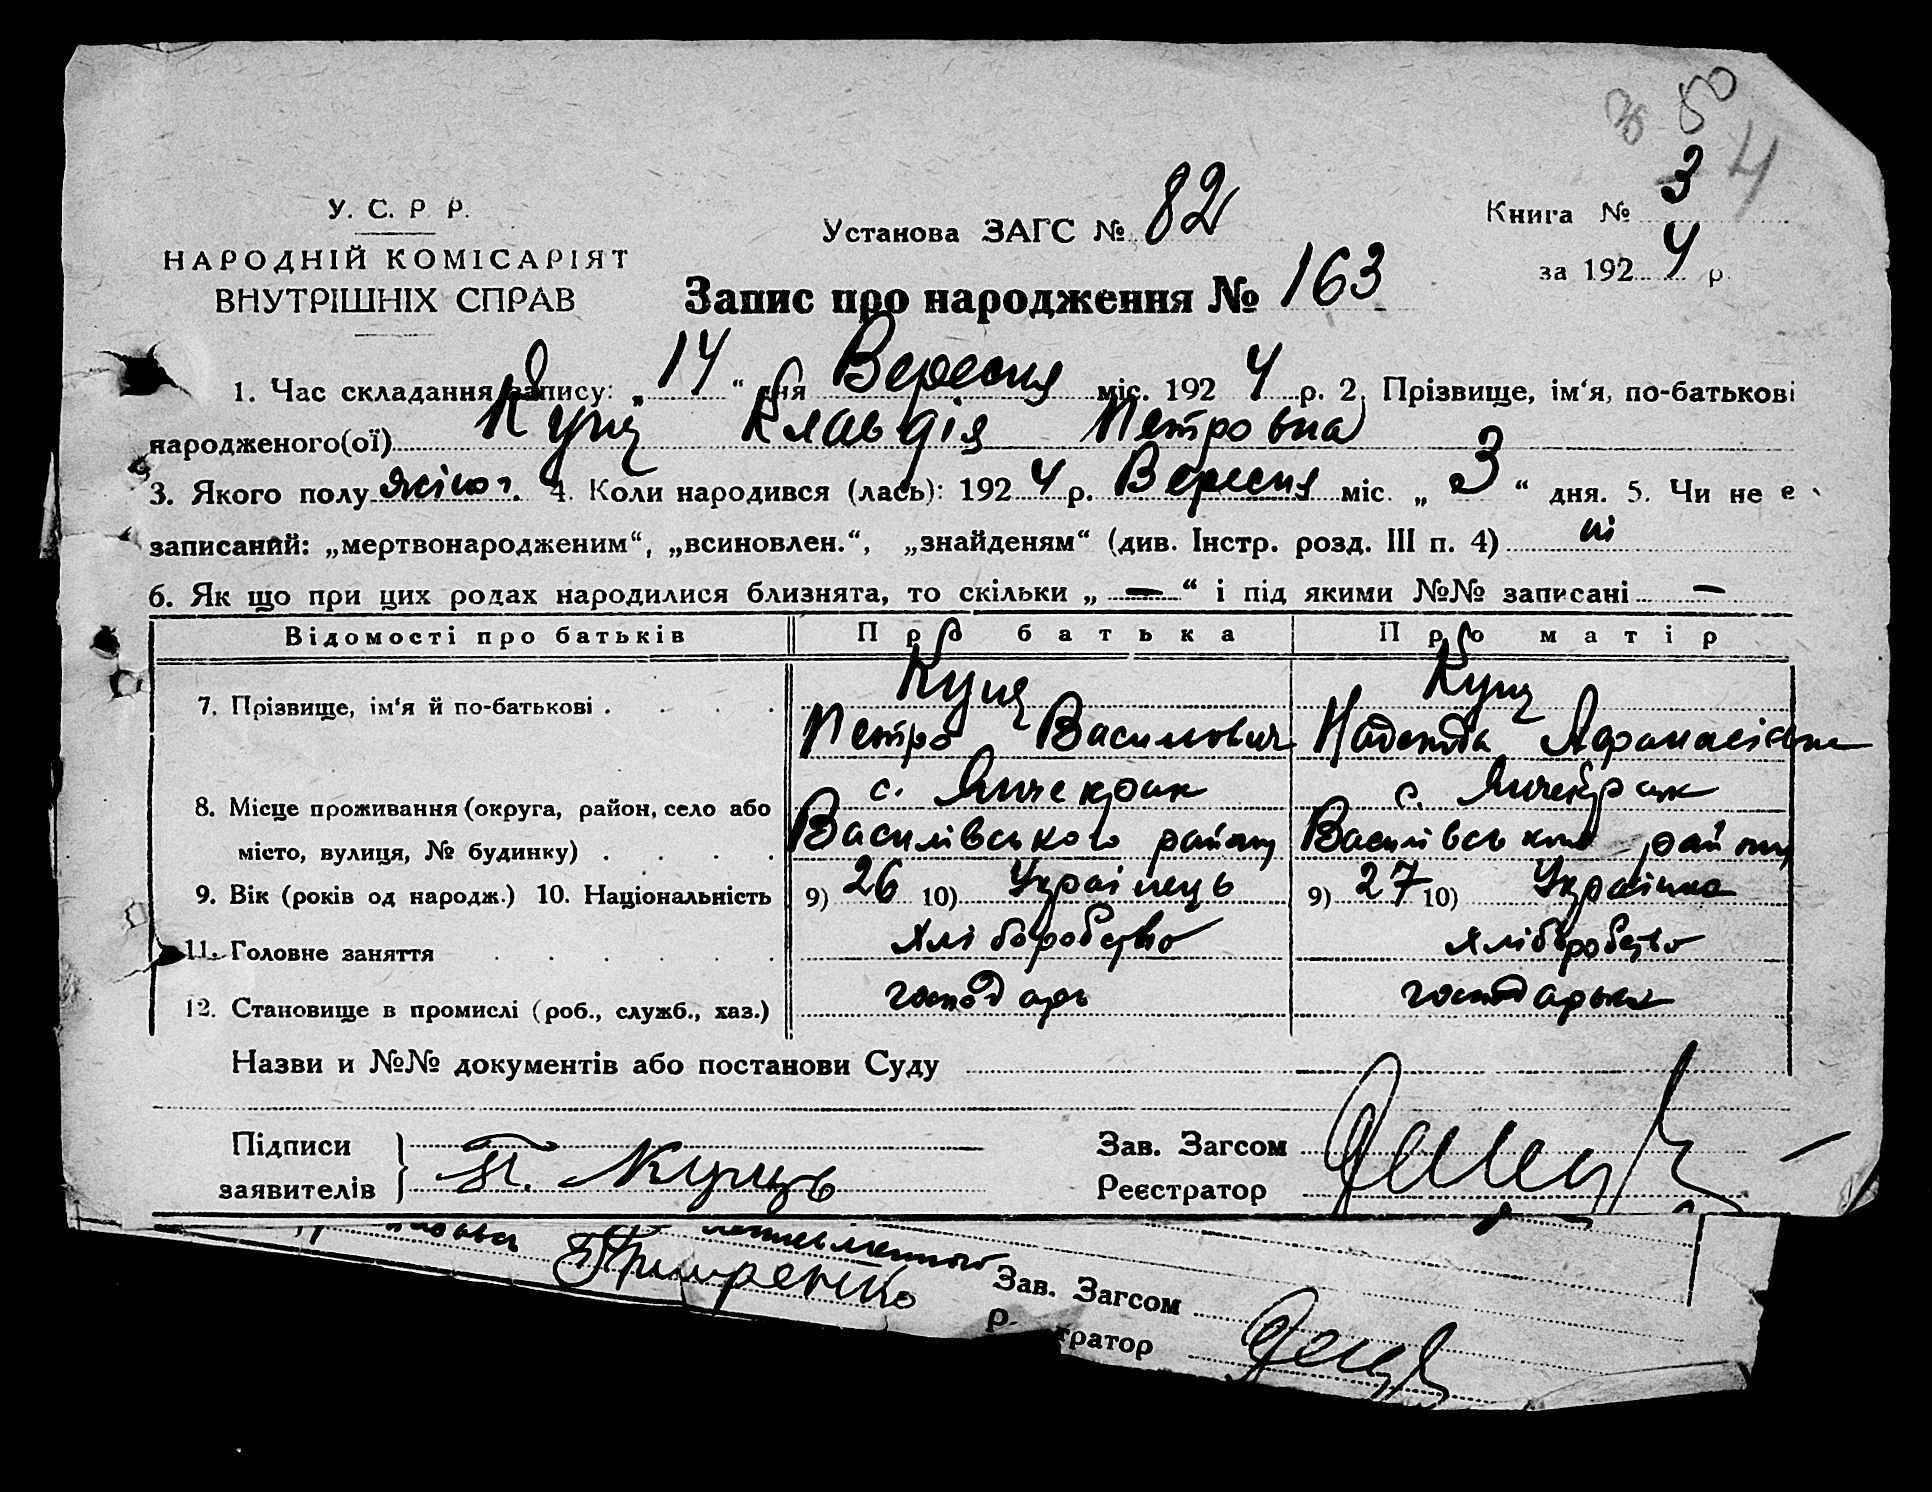 80
4
У. С. Р. Р.
НАРОДНІЙ КОМІСАРІЯТ
ВНУТРІШНІХ СПРАВ
Установа ЗАГС № 82
Книга № 3
за 1924 р.
Запис про народження № 163
1. Час складання запису: „14“ дня Вересня міс. 1924 р. 2. Прізвище, ім‘я, по-батькові
народженого(ої) Куць Клавдія Петровна
3. Якого полу жіноч. 4. Коли народився (лась): 1924 р. Вересня міс. „3“ дня. 5. Чи не є
записаний: „мертвонародженим“, „всиновлен.“, „знайденям“ (див. Інстр. розд. III п. 4) ні
6. Як що при цих родах народилися близнята, то скільки „—“ і під якими №№ записані —
Відомості про батьків Про батька Про матір
7. Прізвище, ім‘я й по-батькові . . . . Куць Куць
Петро Василович Надежда
8. Місце проживання (округа, район, село або с. Янчекрак с. Янчекрак
місто, вулиця, № будинку) . . . . Василівського району Василівського району
9. Вік (років од народж.) 10. Національність 9) 26 10) Українець 9) 27 10) Українка
11. Головне заняття . . . . . хліборобство хліборобство
12. Становище в промислі (роб., служб., хаз.) господарь господарька
Назви и №№ документів або постанови Суду
Підписи
заявителів П. Куць
Зав. Загсом
Реєстратор
Зав. Загсом